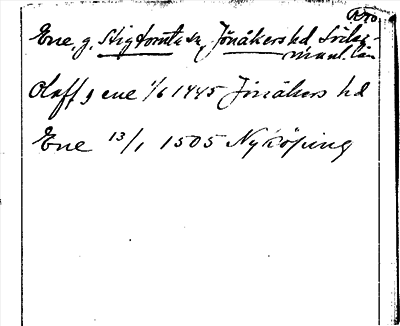 Ene g. Stigtomta sn, Jönåkers hd Södermanl. län
Olaff j ene 1/6 1445 Jönåkers hd
Ene 13/1 1505 Nyköping